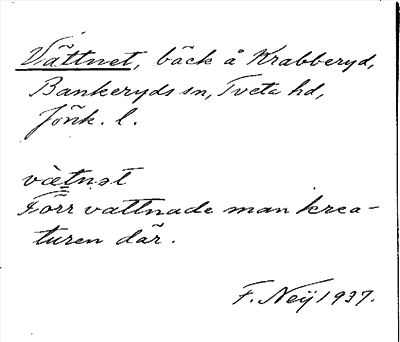 Vättnet, bäck å Krabberyd,
Bankeryds sn, Tveta hd,
Jönk. l.
vætnət
Förr vattnade man krea-
turen där.
F. Neij 1937.